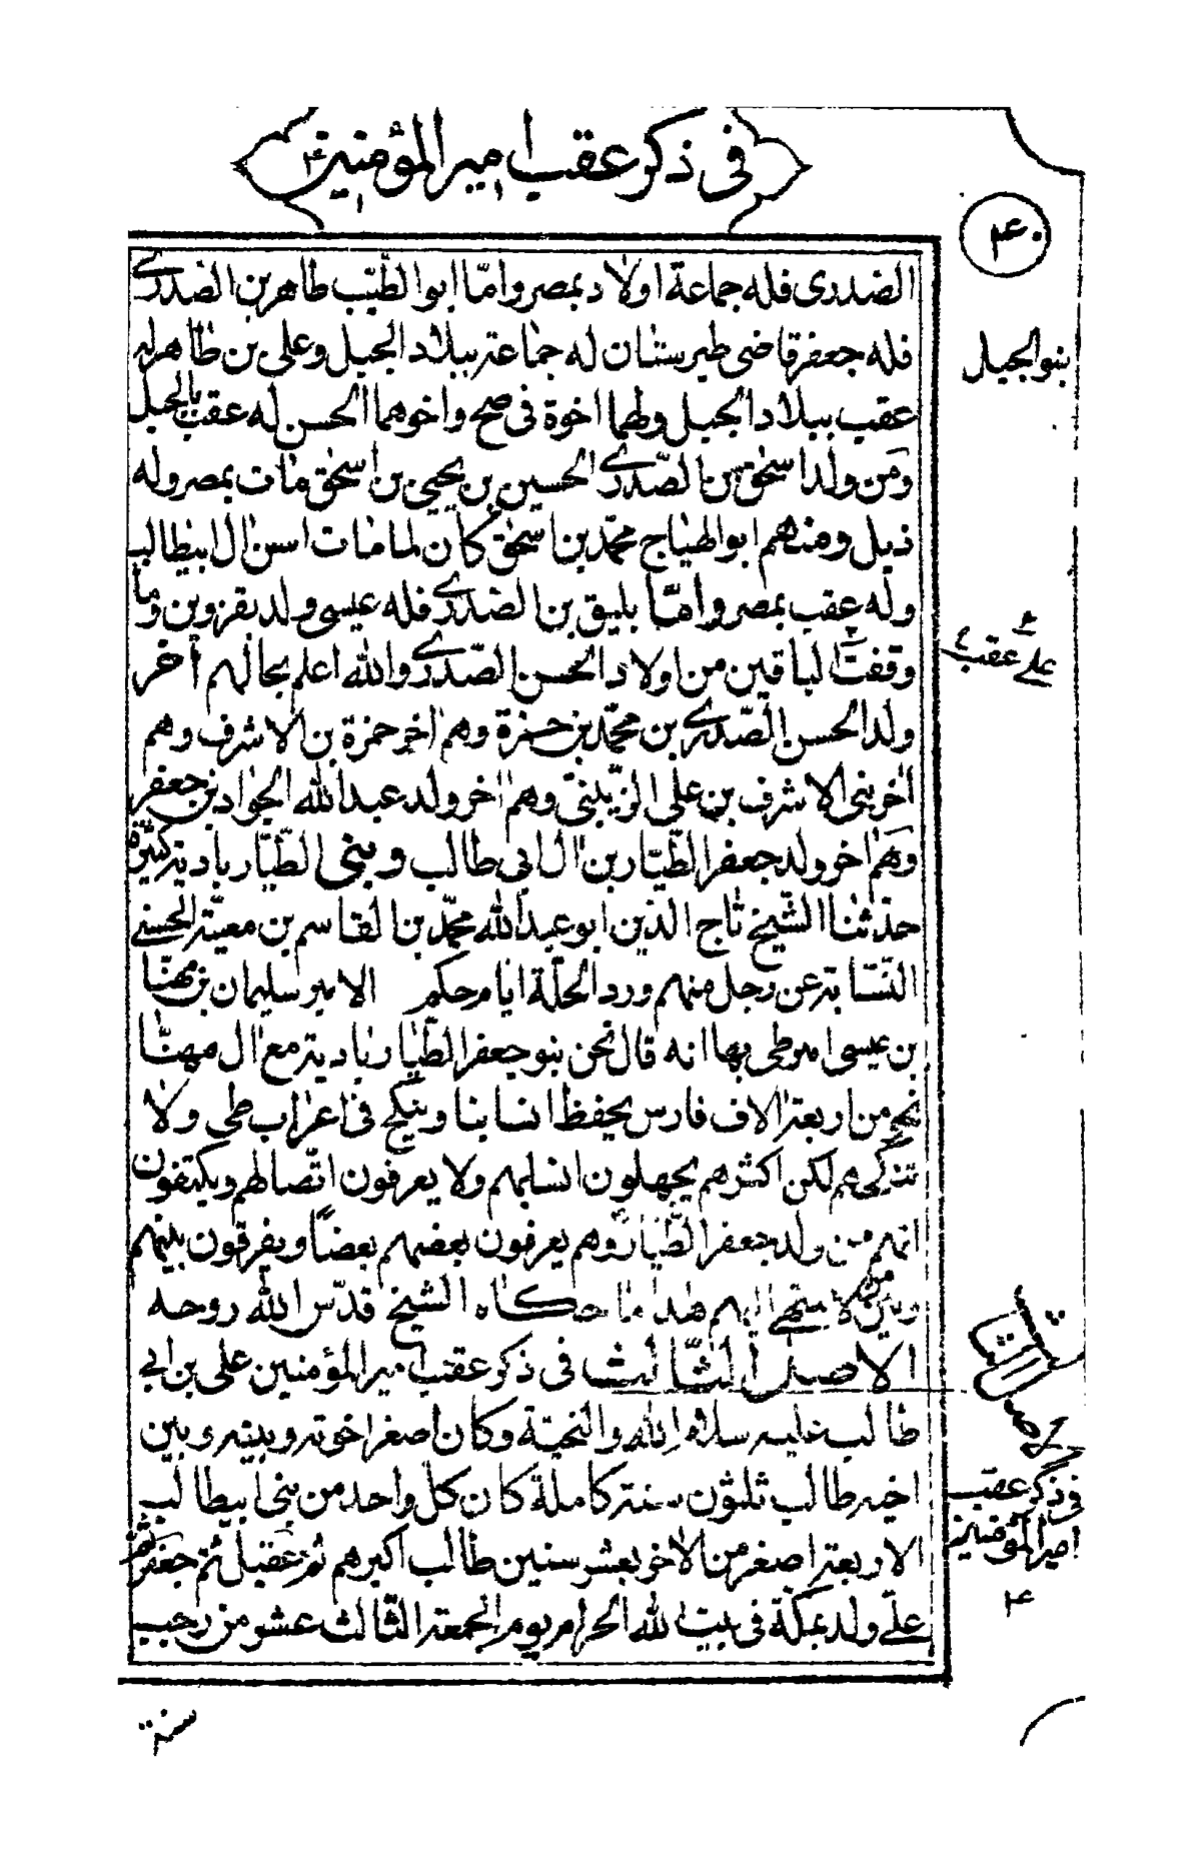 في ذكر عقب امير المؤمنين ع
۴۰
الصدرى فله جماعة اولاد بمصر وامّا ابو الطّيّب طاهر بن الصدرى
فله جعفر قاضى طبرستان له جماعة ببلاد الجبل وعلى بن طاهر له
عقب ببلاد الجبل ولهما اخوة فى صح واخوهما الحسن له عقب بالجبل
ومن ولد اسحٰق بن الصّدرى الحسين بن يحيى بن اسحٰق مات بمصر وله
ذيل ومنهم ابو الهياج محمّد بن اسحٰق كان لما مات اسن اٰل ابيطالب
وله عقب بمصر وامّا بليق بن الصدرى فله عيسى ولد بقزوين وما
وقفت الباقين من اولاد الحسن الصّدرى والله اعلم بحالهم اٰخر
ولد الحسن الصّدرى بن محمّد بن حمزة وهم اٰخر حمزة بن الاشرف وهم
اٰخر بنى الاشرف بن على الزّينبى وهم اٰخر ولد عبد الله الجواد بن جعفر
وهم اٰخر ولد جعفر الطّيّار بن اٰل ابى طالب وبنى الطّيّار بادية كثيرة
حدّثنا الشّيخ تاج الدّين ابو عبد الله محمّد بن القاسم بن معيّة الحسنى
النّسّابة عن رجل منهم ورد الحلّة ايام حكم الامير سليمان بن مهنّا
بن عيسى امير طى بها انه قال نحن بنو جعفر الطّيار بادية مع اٰل مهنّا
نحو من اربعة اٰلاف فارس يحفظ انسابنا وينكح فى اعراب طى ولا
ننكحهم لكن اكثرهم يجهلون انسابهم ولا يعرفون اتّصالهم ويكتفون
انهم من ولد جعفر الطّيّار وهم يعرفون بعضهم بعضًا ويفرقون بينهم
وبين من لا ينتهى اليهم هذا ما حكاه الشيخ قدّس الله روحه
الاصل الثّالث فى ذكر عقب امير المؤمنين على بن ابى
طالب عليه سلام الله والتحيّة وكان اصغر اخوته وبينه وبين
اخيه طالب ثلثون سنة كاملة كان كلّ واحد من بنى ابيطالب
الاربعة اصغر من الاٰخر بعشر سنين طالب اكبرهم ثم عقيل ثم جعفر ثم
علىّ ولد بمكّة فى بيت الله الحرام يوم الجمعة الثّالث عشر من رجب
سنة
بنو الجبل
على عقب
الاصل الثالث
فى ذكر عقب
امير المؤمنين
ع